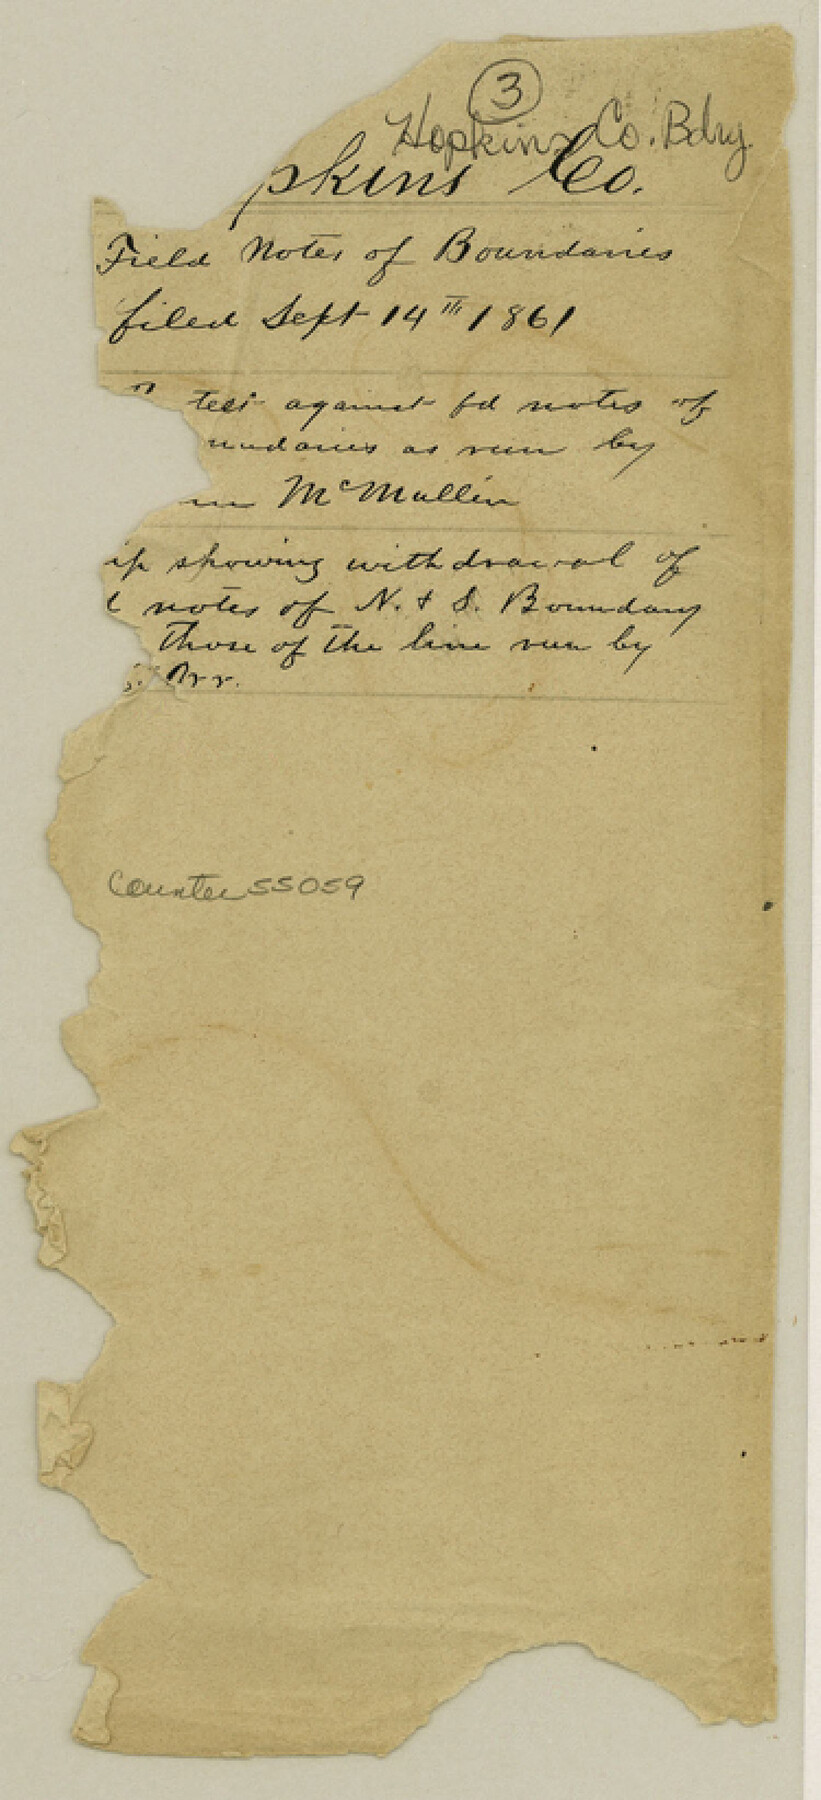 3
Hopkins Co. Bdry.
pkins Co.
Field Notes of Boundaries
filed Sept 14th 1861
test against fd notes of
undaries as run by
McMullin
ip showing withdrawal of
notes of N. & S. Boundary
those of the line run by
Orr.
Counter 55059